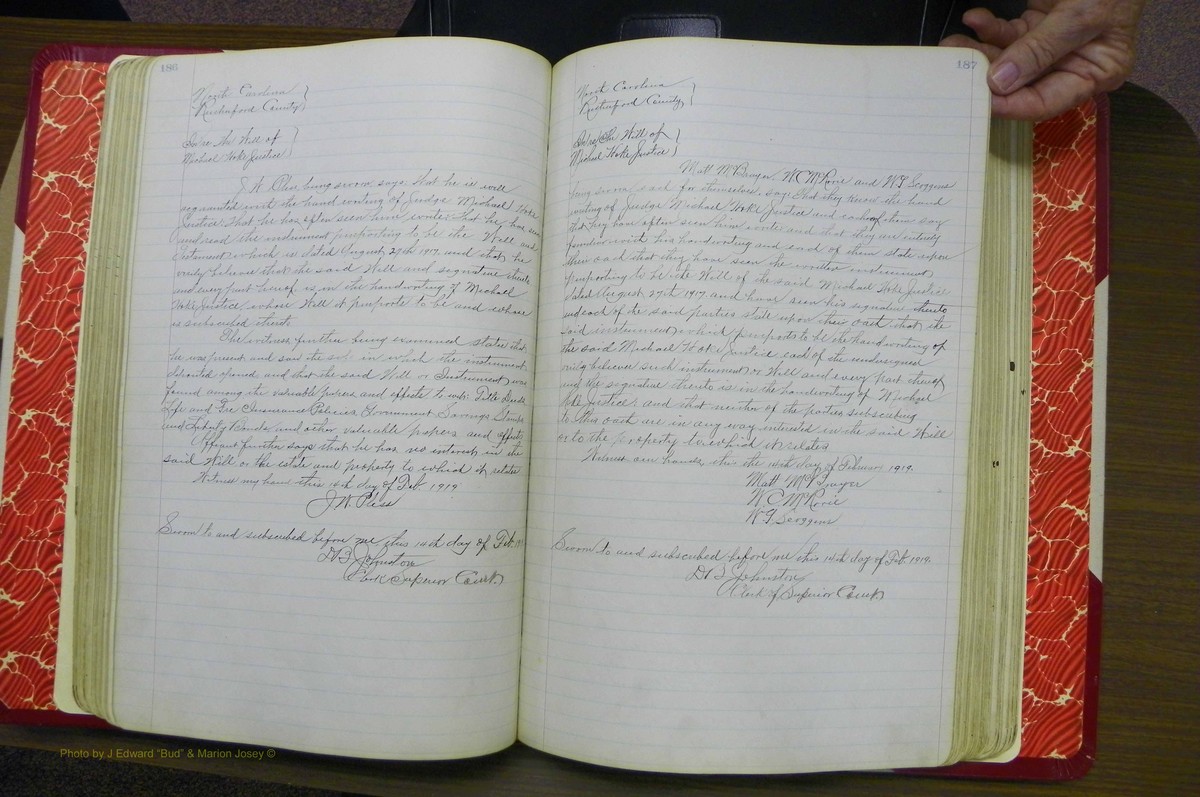 186
North Carolina
Rutherford County
In re the Will of
Michael Hoke Justice
J.W. Pless being sworn says that he is well
acquainted with the hand writing of Judge Michael Hoke
Justice that he has often seen him write that he has seen
and read the instrument purporting to be the Will and
testament which is dated August 27th 1917. and that he
verily believes that the said Will and signature thereto
and every part thereof is in the handwriting of Michael
Hoke Justice, whose Will it purports to be and whose
is subscribed thereto
The witness further being examined states that
he was present and saw the in which the instrument
deposited opened and that the said Will or Instrument was
found among the valuable papers and effects to wit: Title Deeds
Life and Fire Insurance Policies, Government Savings Stamps
and Liberty Bonds and other valuable papers and effects
Affiant further says that he has no interest in the
said Will or the estate and property to which it relates
Witness my han this 14th day of Feb 1919
J.W. Pless
Sworn to and subscribed before me this 14th day of Feb. 1919
Johnston
Clerk Superior Court
187
North Carolina
Rutherford County
In re the Will of
Michael Hoke Justice
Matt McBrayer, W.C. McRorie and Scoggins
being sworn each for themselves, say: that they know the hand
writing of Judge Michael Hoke Justice and each of them say
that they have often seen him write and that they are entirely
familiar with his handwriting and each of them state upon
their oath that they have seen the written instrument
purporting to be the Will of the said Michael Hoke Justice
dated August 27th 1917, and have seen his signature thereto
and each of the said parties state upon their oath that the
said instrument which purports to be the handwriting of
the said Michael Hoke Justice each of the undersigned
verily believes such instrument or Will and every part thereof
and the signature thereto is in the handwriting of Michael
Hoke Justice; and that neither of the parties subscribing
to this oath are in any way interested in the said Will
or to the property to which it relates
Witness our hands, this the 14th day of February 1919.
Matt McBrayer
W.C. McRorie
Scoggins
Sworn to and subscribed before me this 14th day of Feb. 1919.
Johnston
Clerk of Superior Court
Photo by J Edward "Bud" & Marion Josey ©